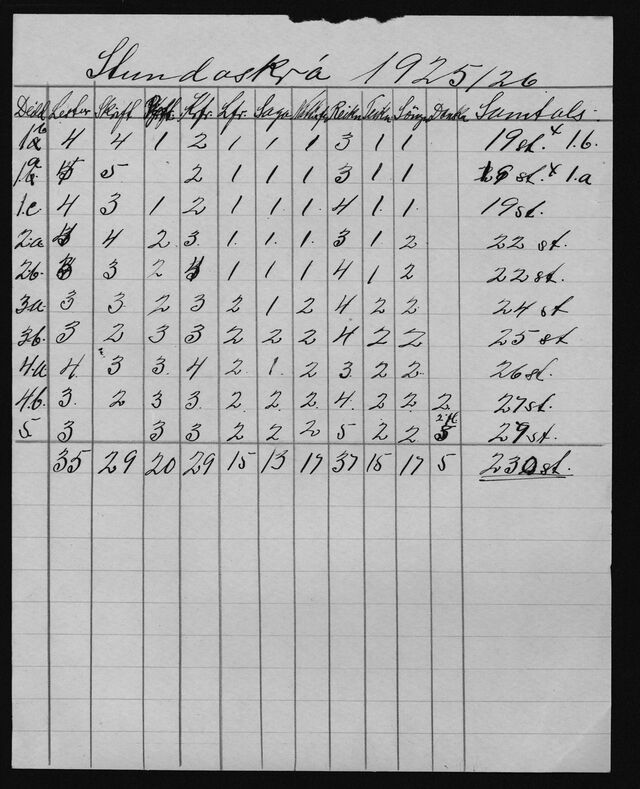 Stundaskrá 1925/26
Deild Lestur Skrift Kfr. Lfr. Saga Reikn Teikn Söngur Danska Samtals.
1b 4 4 1 2 1 1 1 3 1 1 19 st. 1.b.
1a 5 2 1 1 1 3 1 1 st. 1.a
1.c 4 3 1 2 1 1 1 4 1 1 19 st.
2.a 4 2 3 1 1 1 3 1 2 22 st.
2b. 3 2 1 1 1 4 1 2 22 st.
3a 3 3 2 3 2 1 2 4 2 2 24 st
3b. 3 2 3 3 2 2 2 4 2 2 25 st
4.a 4 3 3 4 2 1 2 3 2 2 26 st.
4.b. 3 2 3 3 2 2 2 4 2 2 2 27 st.
5 3 3 3 2 2 2 5 2 2 29 st.
35 29 20 29 15 13 17 37 15 17 5 230 st.